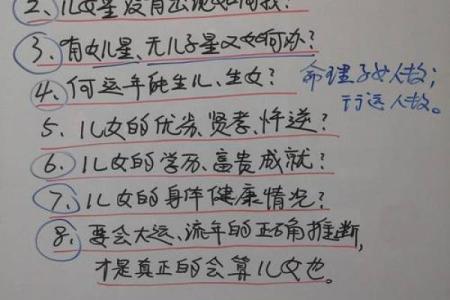 2、儿女星没有出现如何找?
3、有女儿星、无儿子星又如何办?
4、何运年能生儿、生女?
命理子女人故;
行运人故。
5、儿女的优劣、贤孝、忤逆?
6、儿女的学历、富贵成就?
7、儿女的身体健康情况?
8、要会大运、流年的正确推断,
才是真正的会算儿女也。